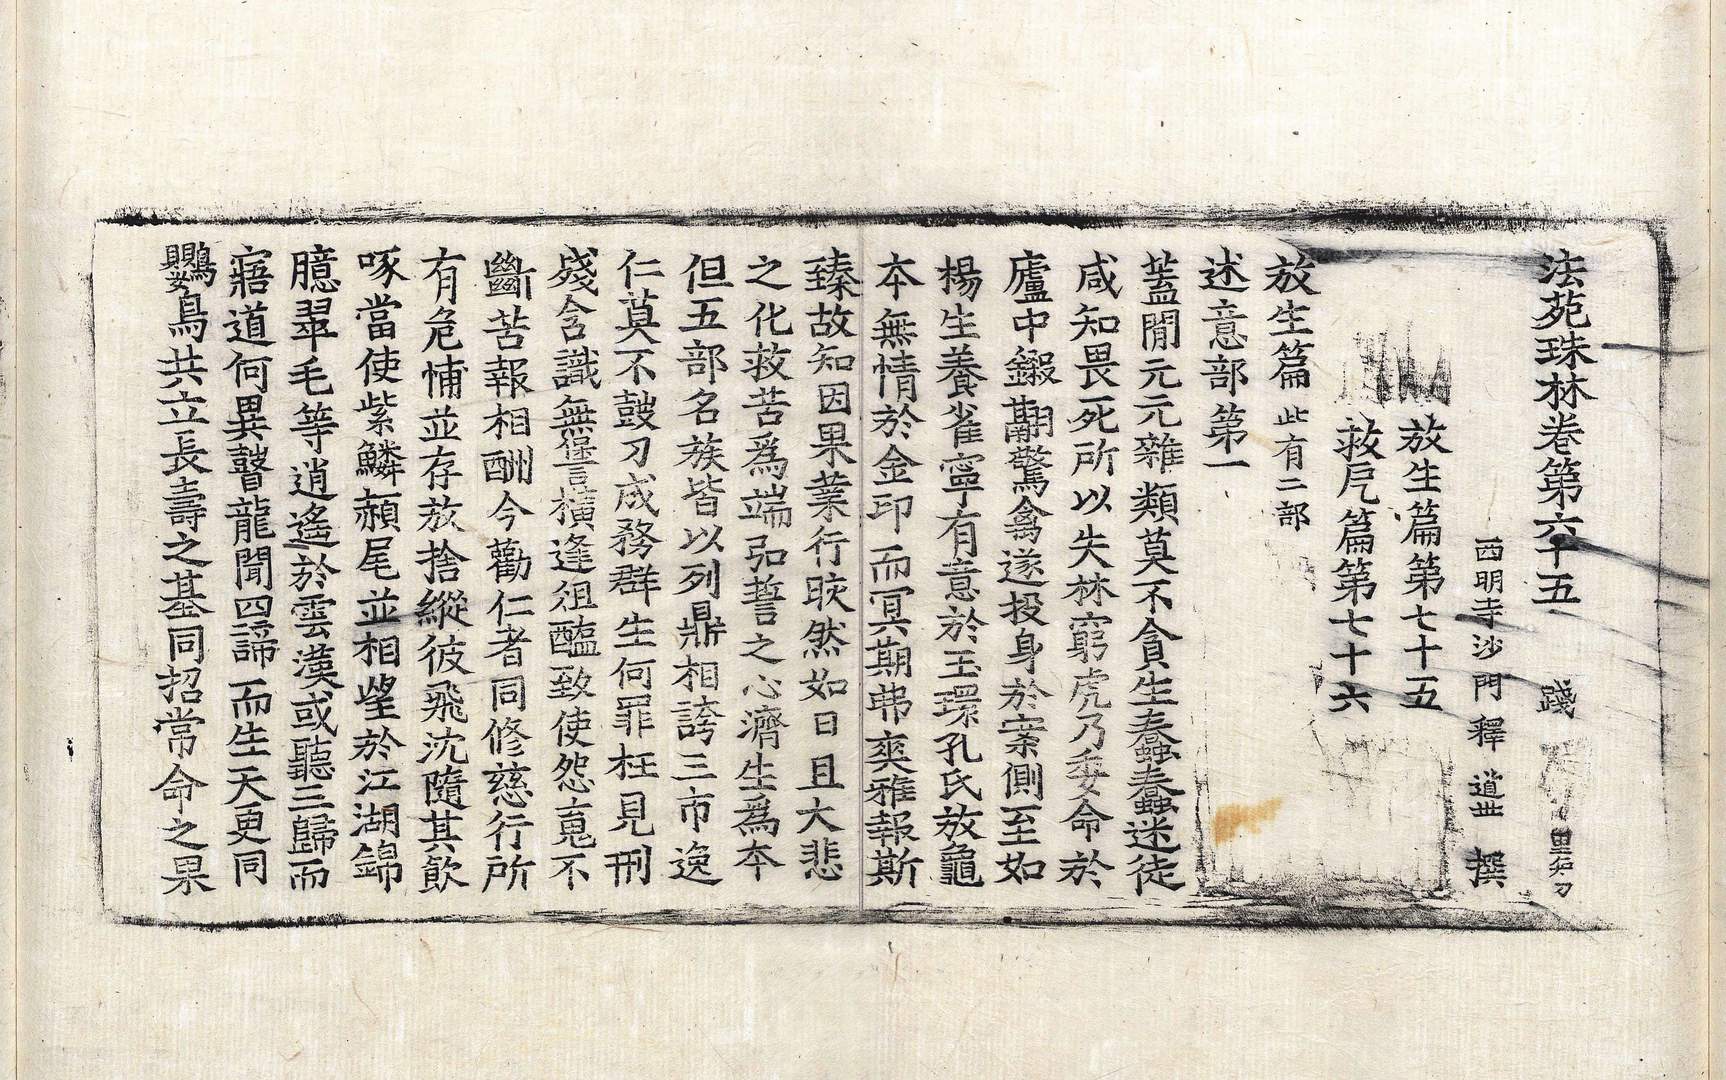 法苑珠林卷第六十五　踐　里知刀
西明寺沙門釋道丗撰
放生篇第七十五
救厄篇第七十六
放生篇此有二部
述意部第一
蓋聞元元雜類莫不貪生蠢蠢迷徒
咸知畏死所以失林窮虎乃委命於
廬中鎩翮驚禽遂投身於案側至如
楊生養雀寧有意於玉環孔氏放龜
本無情於金印而冥期弗爽雅報斯
臻故知因果業行皎然如日且大悲
之化救苦爲端弘誓之心濟生爲本
但五部名族皆以列鼎相誇三市逸
仁莫不鼓刀成務群生何罪枉見刑
殘含識無愆橫逢俎醢致使怨䰟不
斷苦報相酬今勸仁者同修慈行所
有危怖並存放捨縱彼飛沈隨其飲
啄當使紫鱗赬尾並相望於江湖錦
臆翠毛等逍遙於雲漢或聽三歸而
寤道何異瞽龍聞四諦而生天更同
鸚鳥共立長壽之基同招常命之果